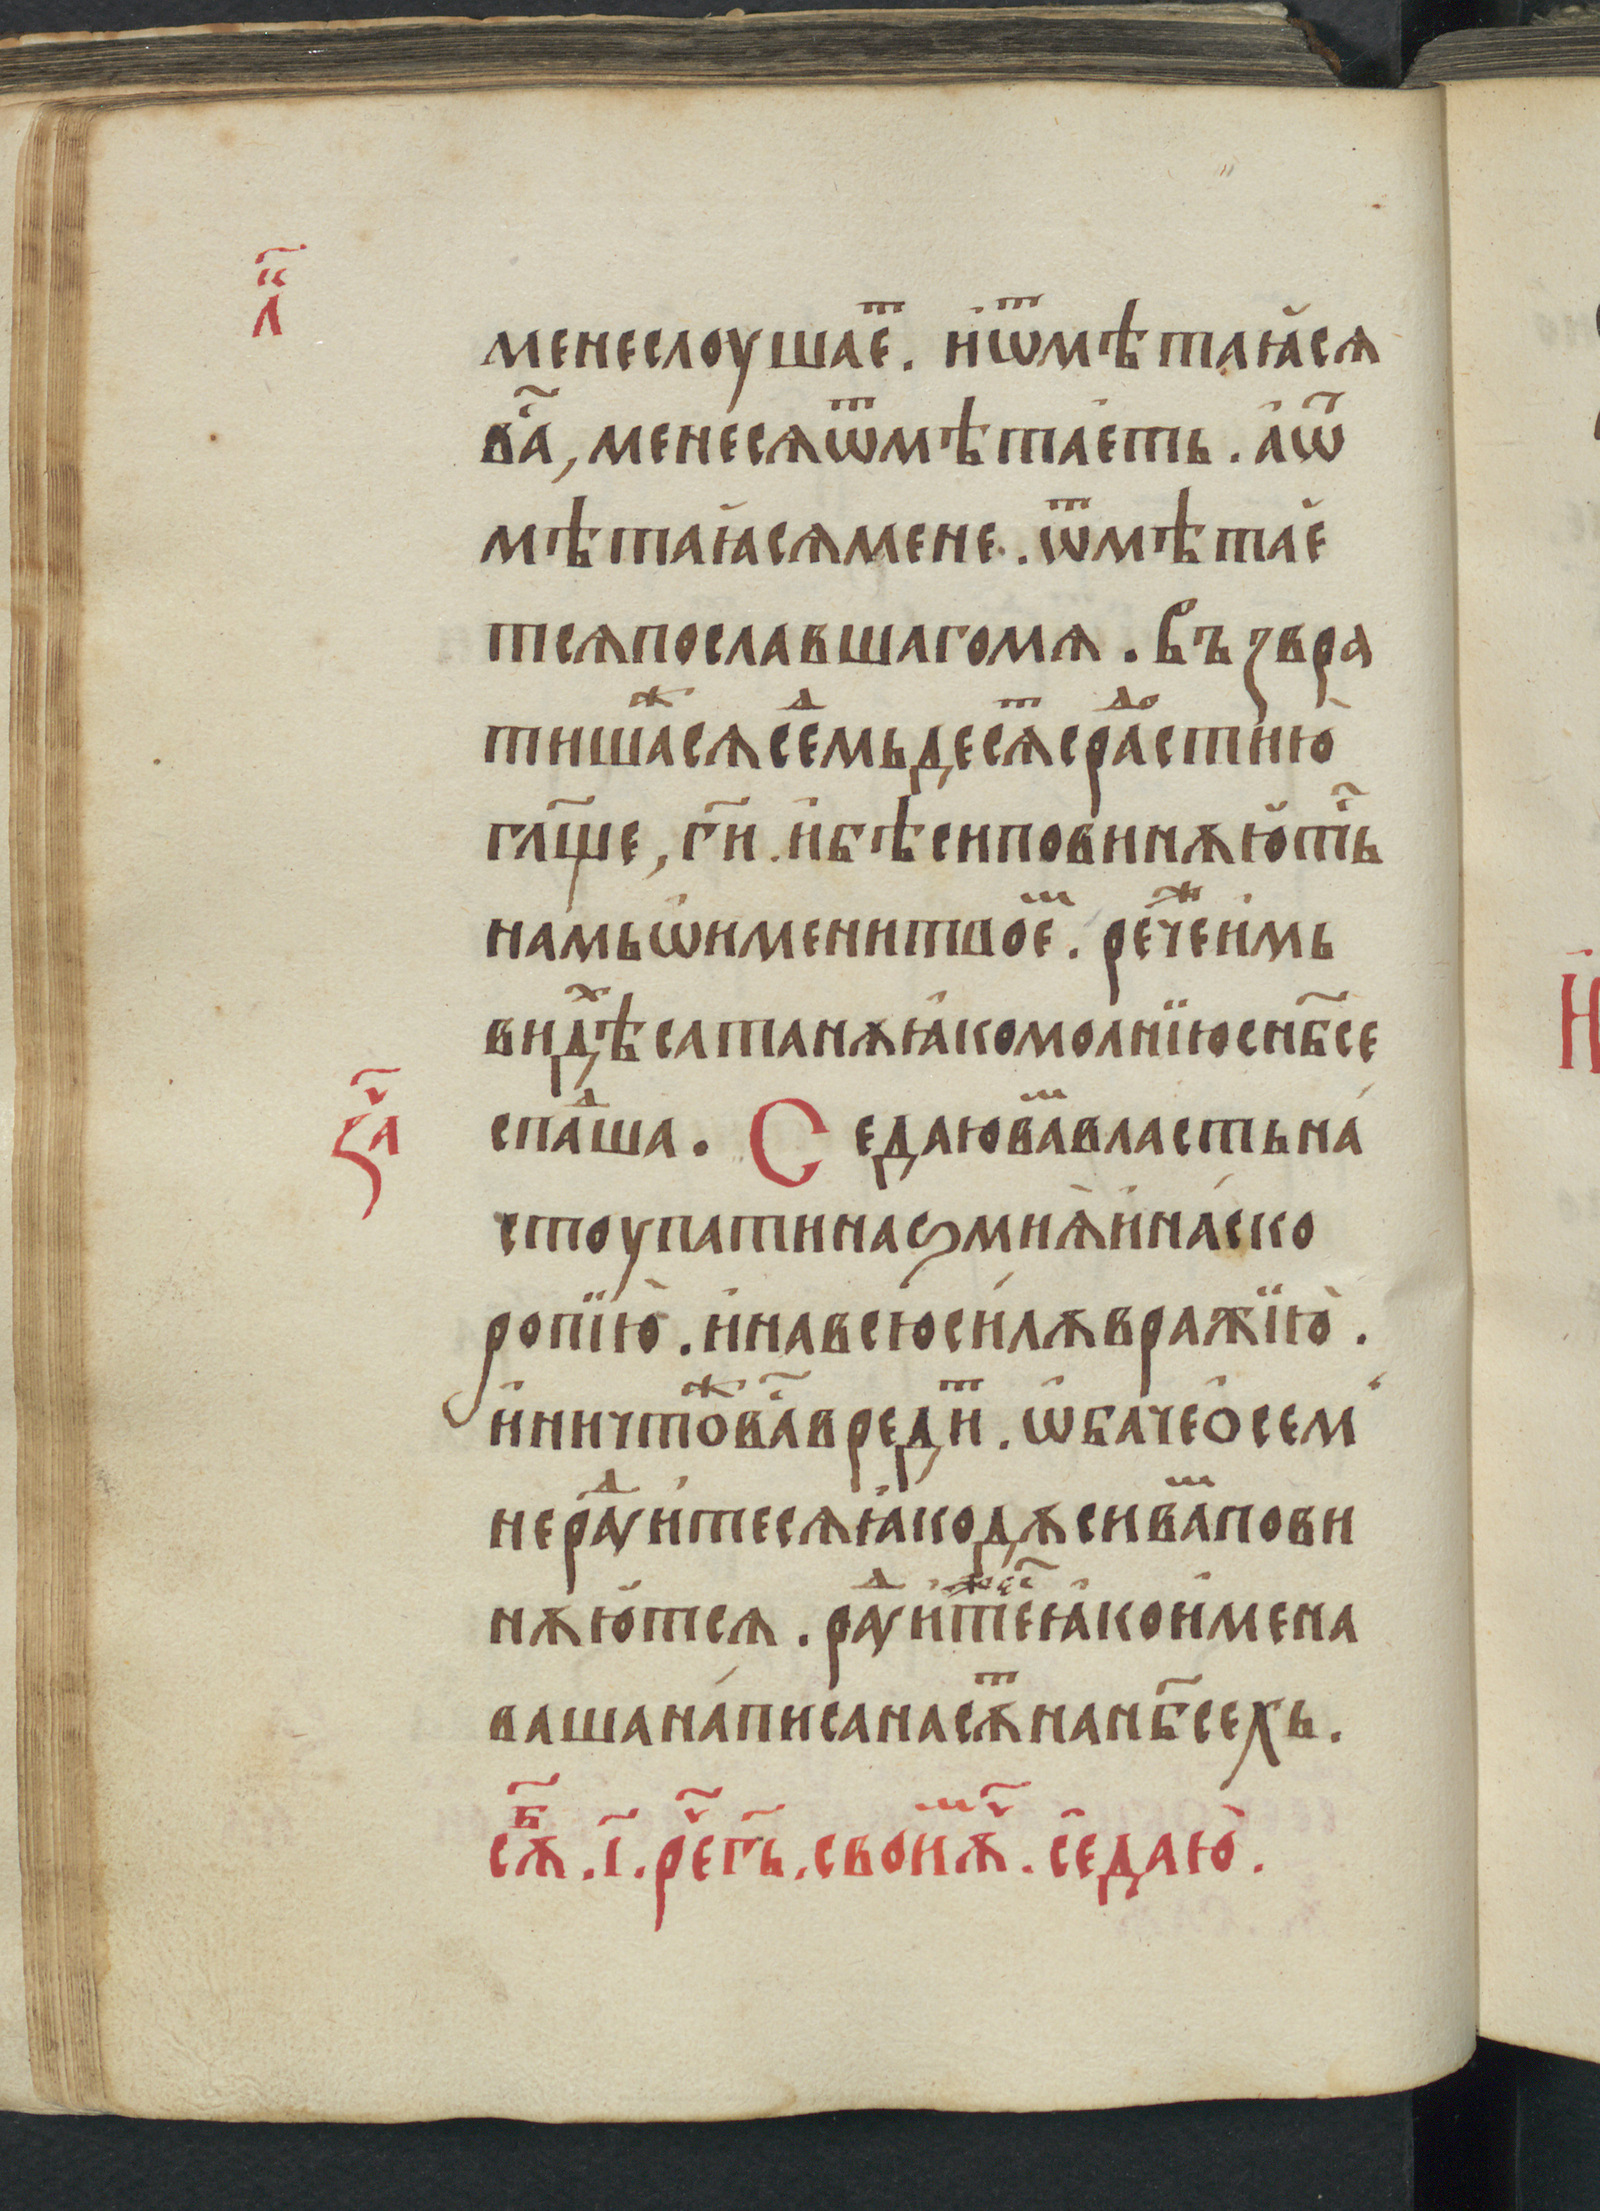 л҃к
менеслоушаеⷮ. иѿмѣтаѩйсѧ
ва҃с, менесѧѿмѣтаеть. аѿ
мѣтаѩйсѧмене. ѿмѣтае
тсѧпославшагомѧ. Въꙁвра
тишаⷤсѧсеⷣмьдесѧⷮсраⷣостїю
гл҃ще, ги҃. ибѣсиповинѫютьс҃
намьѡименитвоеⷨ. речеⷤимь
видⷯѣсатанѫꙗкомолнїюснб҃се
спаⷣша. Седаювамⷨвластьна
за҃ⷱ
стоупатинаѕмиѧинаско
ропїю. инавсюсилѫвражїю.
иничтоⷤва҃свредиⷮ. ѡбачеосем
нераⷣуитесѧꙗкодѫсиваⷨпови
нѫютсѧ. раⷣуитеⷤсѧꙗкоимена
вашанаписанасѫⷮнанб҃сехь.
сѫⷠ҃. і҃. рече҃ гь҃. своиⷨ оучѧ҃. седаю.